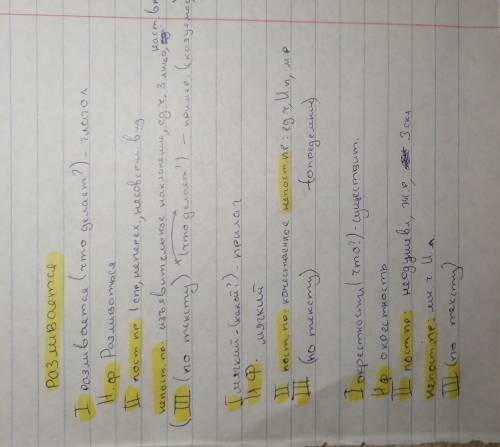 разливается
I разливается (что делает?) - глагол
Н.ф. Разливаться
II пост.пр: I спр, неперех, несоверш вид
непост.пр изъявительное наклонении, ед.ч, 3 лицо, наст.в
(III (по тексту) (что делает?) - пример. (сказуемое)
I мягкий (какой?) - прилаг
Н.Ф. мягкий
II пост.пр: качественное непост.пр: ед.ч, И.п, м.р
III (по тексту) (определение)
I окрестности (что?) - существит.
Н.ф окрестность
II пост.пр: неодушевл, ж.р, 3 скл
непост.пр: мн.ч И.п
III (по тексту)